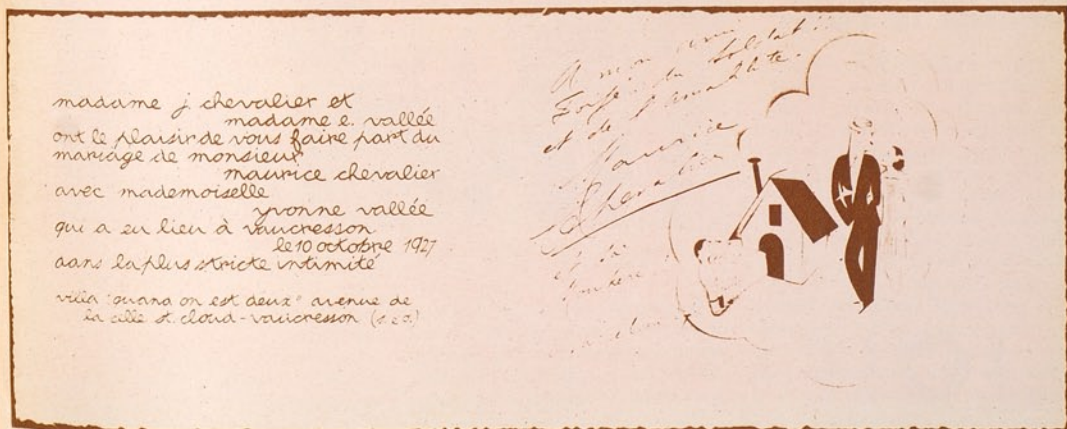 madame j chevalier et
madame e. vallée
ont le plaisir de vous faire part du
mariage de monsieur
maurice chevalier
avec mademoiselle
yvonne vallée
qui a eu lieu à vaucresson
le 10 octobre 1927
dans la plus stricte intimité
villa "quand on est deux" avenue de
la celle st. cloud - vaucresson (s. & o.)
A mon ami
du Soldat
et de l'
Maurice
Chevalier
et sa